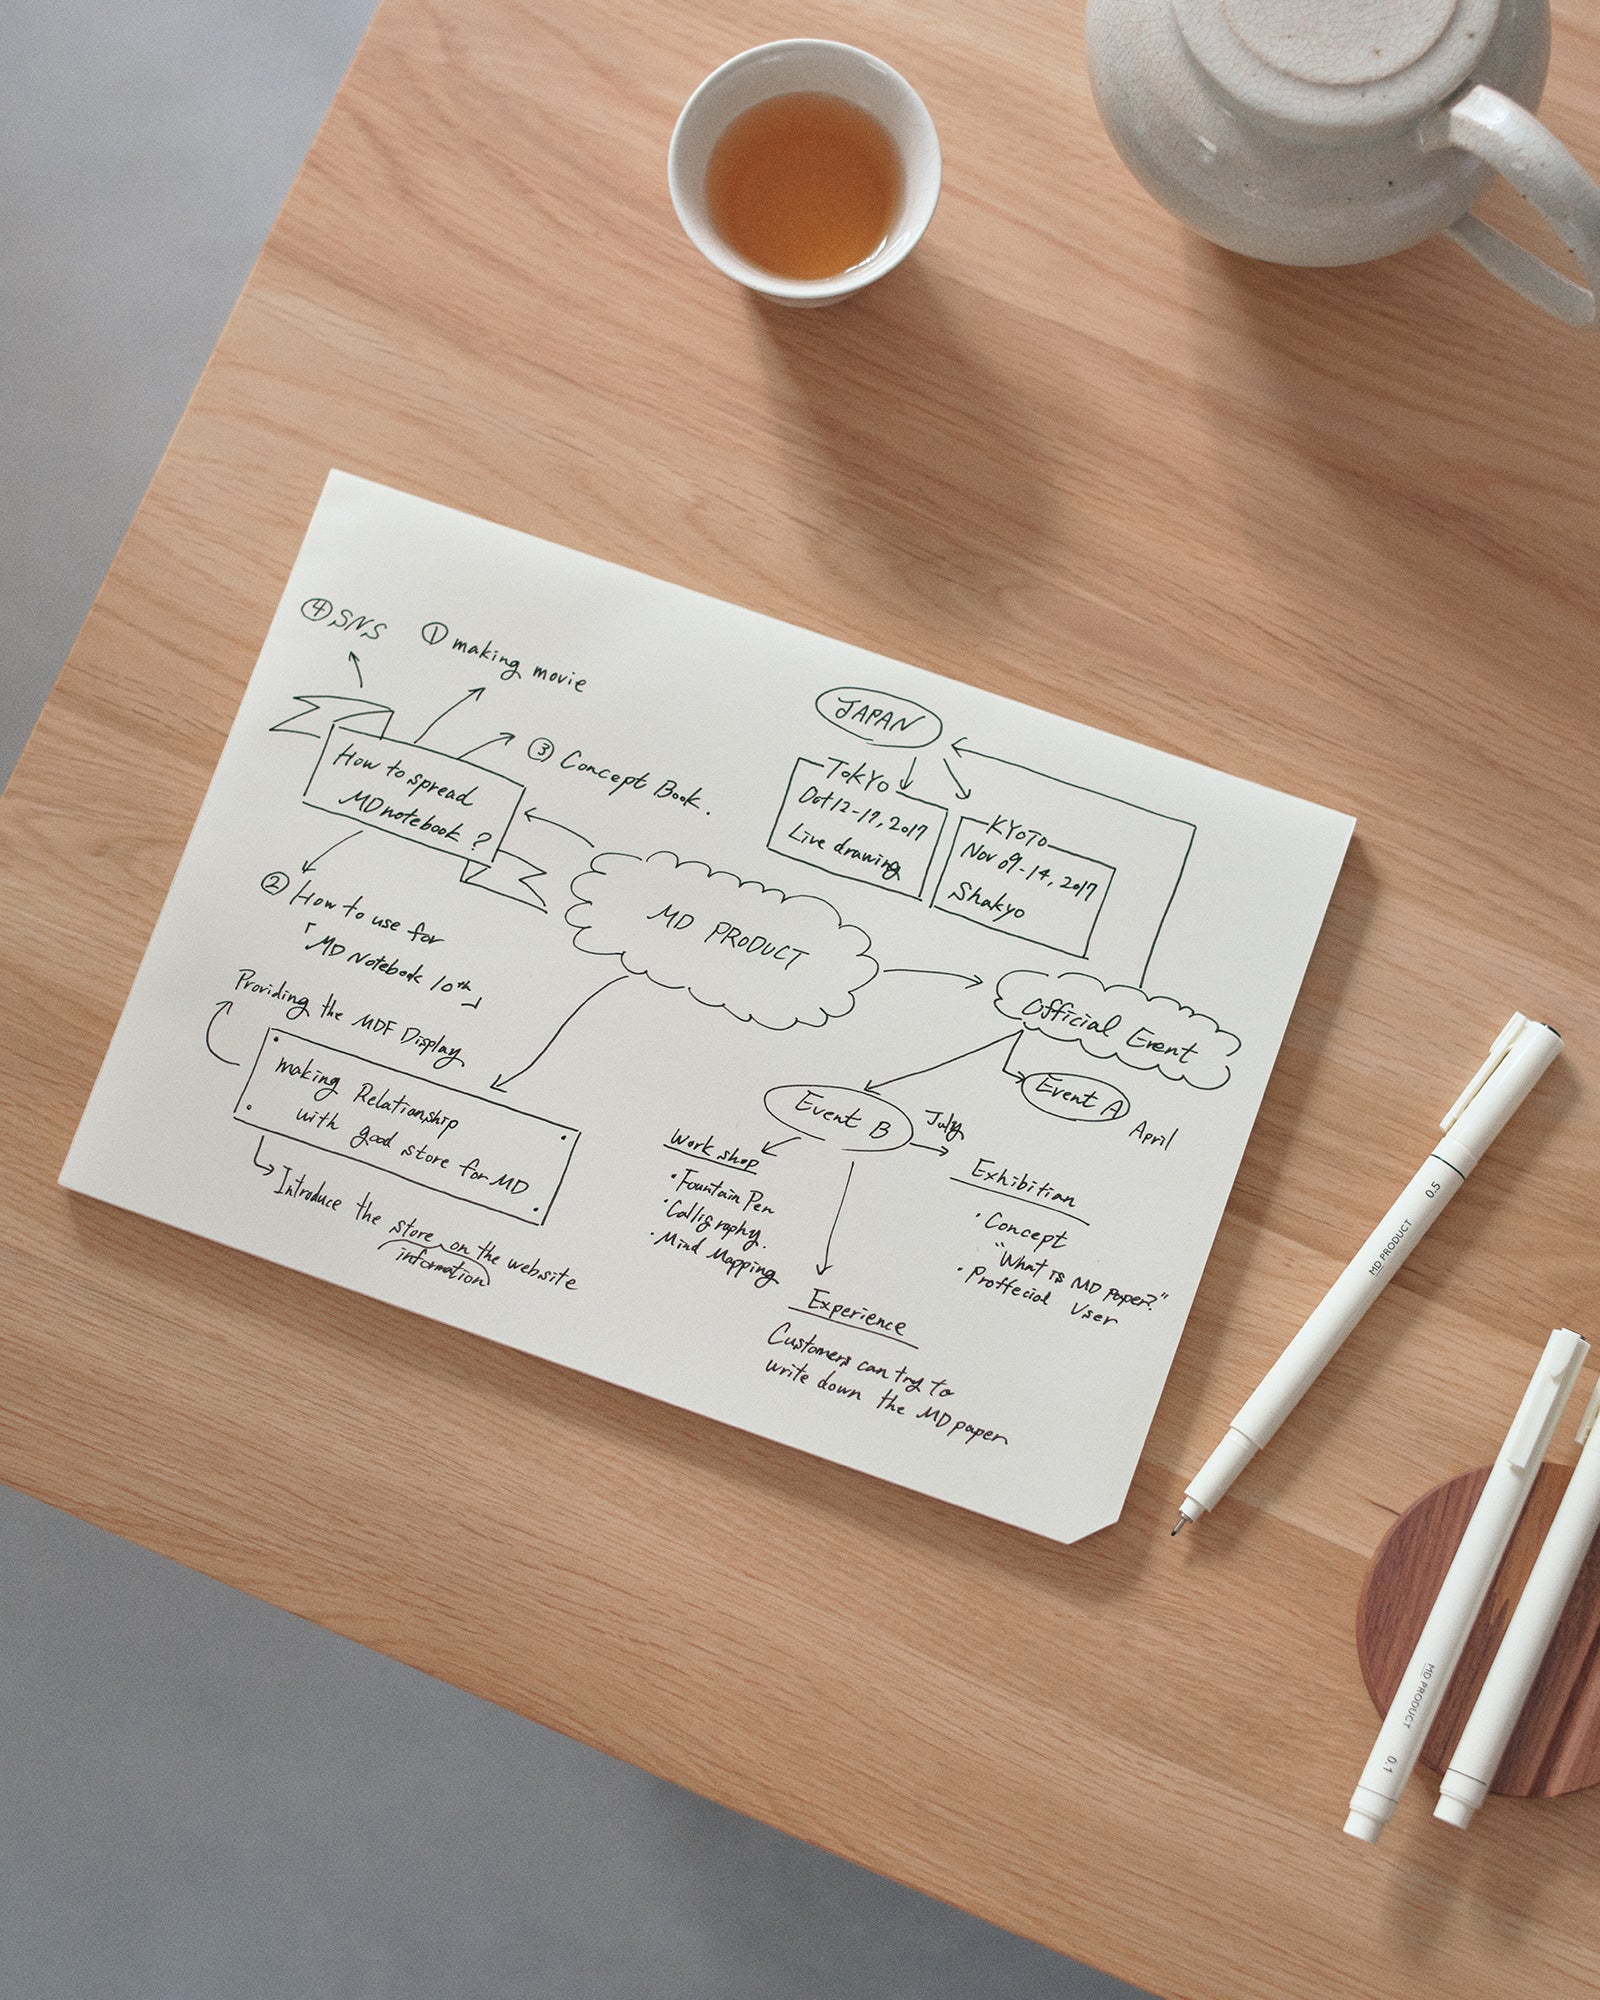 ④ SNS
① making movie
③ Concept Book.
How to spread
MD notebook ?
② How to use for
「MD Notebook 10th」
MD PRODUCT
JAPAN
TOKYO
Oct 12-17, 2017
Live drawing
KYOTO
Nov 09-14, 2017
Shakyo
Official Event
Event A
April
Event B
July
Work shop
・Fountain Pen
・Calligraphy.
・Mind Mapping
Exhibition
・Concept
"What is MD paper?"
・Proffecial User
Experience
Customers can try to
write down the MD paper
Providing the MDF Display
making Relationship
with good store for MD
Introduce the store on the website
information
MD PRODUCT 0.5
MD PRODUCT 0.1